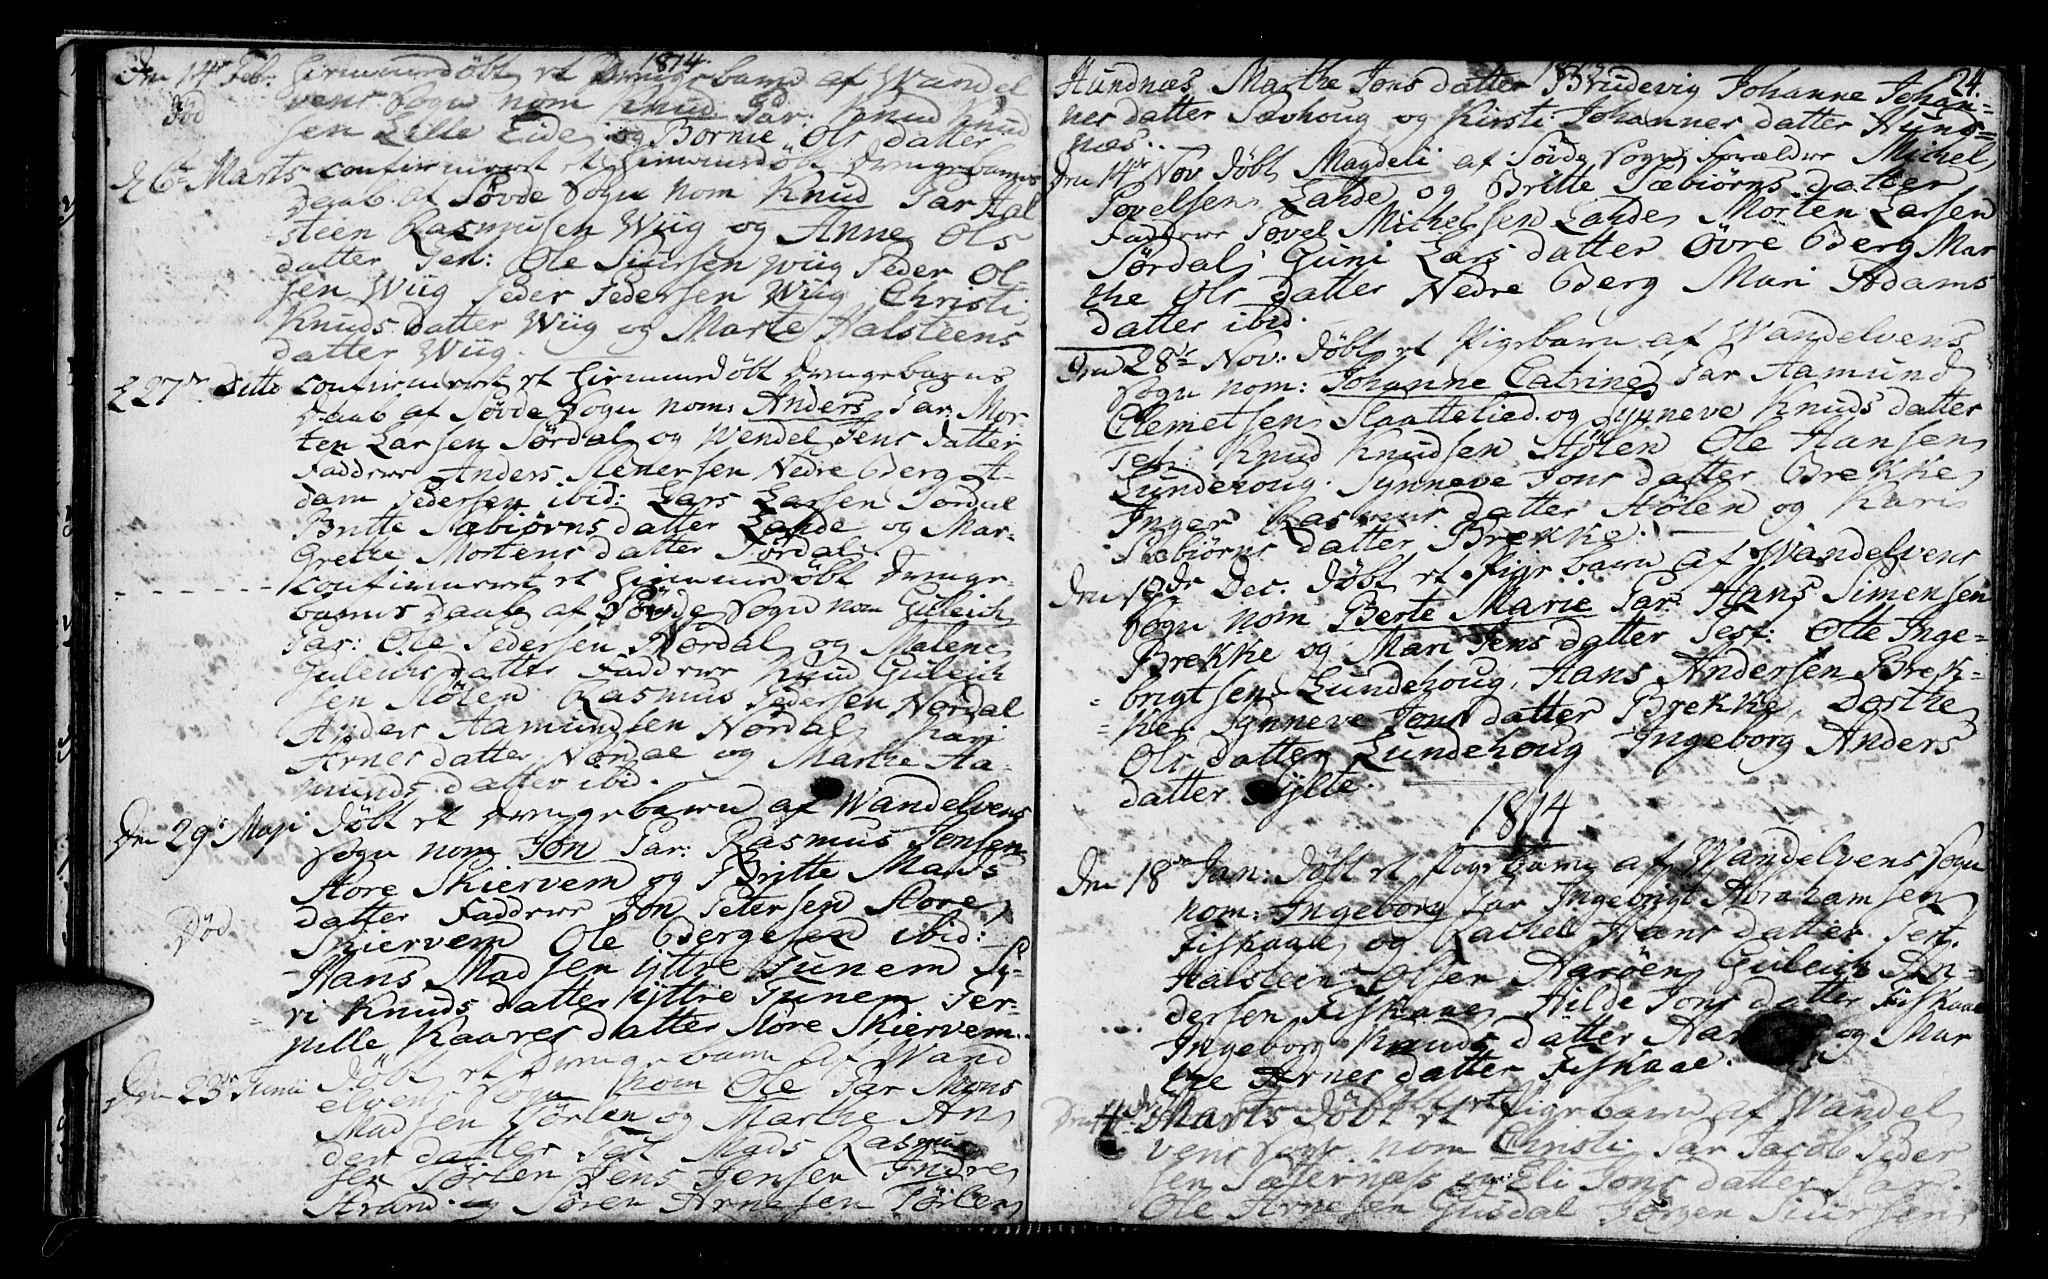 1814.
Den 14de Feb: hiemmedöbt et Drengebarn af Wandel
vens Sogn nom Knud Par: Knud Knud
Död
sen Lille Eide og Bornie Ols datter
d 6te Marts confirmeret et hiemmedöbt Drengebarns
daab af Søvde Sogn nom Knud Par Hal
steen Rasmussen Wiig og Anne Ols
datter Test: Ole Siursen Wiig Peder Ol
sen Wiig Peder Pedersen Wiig Christi
Knuds datter Wiig og Marte Halsteens
datter Wiig.
d 27de Ditto confirmeret et hiemmedöbt Drengebarns
daab af Søvde Sogn nom: Anders Par: Mor-
ten Larsen Sørdal og Wendel Jens datter
Faddere Anders Stenersen Nedre Berg A-
dam Pedersen ibid: Lars Larsen Sørdal
Britte Sæbiørns datter Lande og Mar-
grethe Mortens datter Sørdal.
- - - - - - confirmeret et hiemmedöbt Drenge-
barns daab af Søvde Sogn nom Guleich
Par: Ole Pedersen Nordal og Malene
Guleichs datter Faddere Knud Guleich
sen Stölen Rasmus Pedersen Nordal
Anders Aamundsen Nordal Kari
Arnes datter Nordal og Marthe Aa-
munds datter ibid.
Den 29de Maji döbt et Drengebarn af Wandelvens
Sogn nom Jon Par: Rasmus Jonsen
Store Skiervem og Britte Mads
datter Faddere Jon Petersen Store
Död
Skiervem Ole Bergesen ibid:
Hans Madsen yttre Tunem Sy-
ri Knuds datter yttre Tunem Per-
nille Kaares datter Store Skiervem.
Den 23de Junii döbt et Drengebarn af Wand
elvens Sogn nom Ole Par Mons
Madsen Tørlen og Marthe An
ders datter Test Mads Rasmus
sen Tørlen Jens Jensen Indre
Strand og Søren Arnesen Tørlen
24.
Hundnæs Marthe Jons datter Brudevig Johanne Johan-
nes datter Søvhoug og Kirsti Johannes datter Hund-
næs.
Den 14de Nov döbt Magdeli af Søvde Sogn Forældre Michel
Povelsen Lande og Britte Sæbiørns datter
Faddere Povel Michelsen Lande Morten Larsen
Sørdal Guni Lars datter Øvre Berg Mar
the Ols datter Nedre Berg Mari Adams
datter ibid.
Den 28de Nov: döbt et Pigebarn af Wandelvens
Sogn nom: Johanne Catrine Par Aamund
Clemetsen Slaattelied og Synneve Knuds datter
Test Knud Knudsen Hølen Ole Hansen
Lundehoug Synneve Jons datter Brekke
Inger Rasmus datter Hølen og Kari
Sæbiørns datter Brekke.
Den 12de Dec. döbt et Pigebarn af Wandelvens
Sogn nom Berte Marie Par: Hans Simensen
Brekke og Mari Jens datter Test: Otte Inge-
brigtsen Lundehoug, Hans Andersen Brek-
ke, Synneve Jons datter Brekke, Dorthe
Ols datter Lundehoug Ingeborg Anders
datter Sylte.
1814
Den 18de Jan: döbt et Pigebarn af Wandelvens Sogn
nom: Ingeborg Par Ingebrigt Abrahamsen
Fiskaae og Rachel Hans datter Test.
Halsteen Olsen Aarøen Guleich An-
dersen Fiskaae Hilde Jons datter Fiskaae
Ingeborg Knuds datter og Mar
the Arnes datter Fiskaae.
Den 4de Marts döbt et Pigebarn af Wandel
vens Sogn nom Christi Par Jacob Peder
sen Sæternæs og Eli Jons datter Par:
Ole Arnesen Gusdal Jørgen Siursen